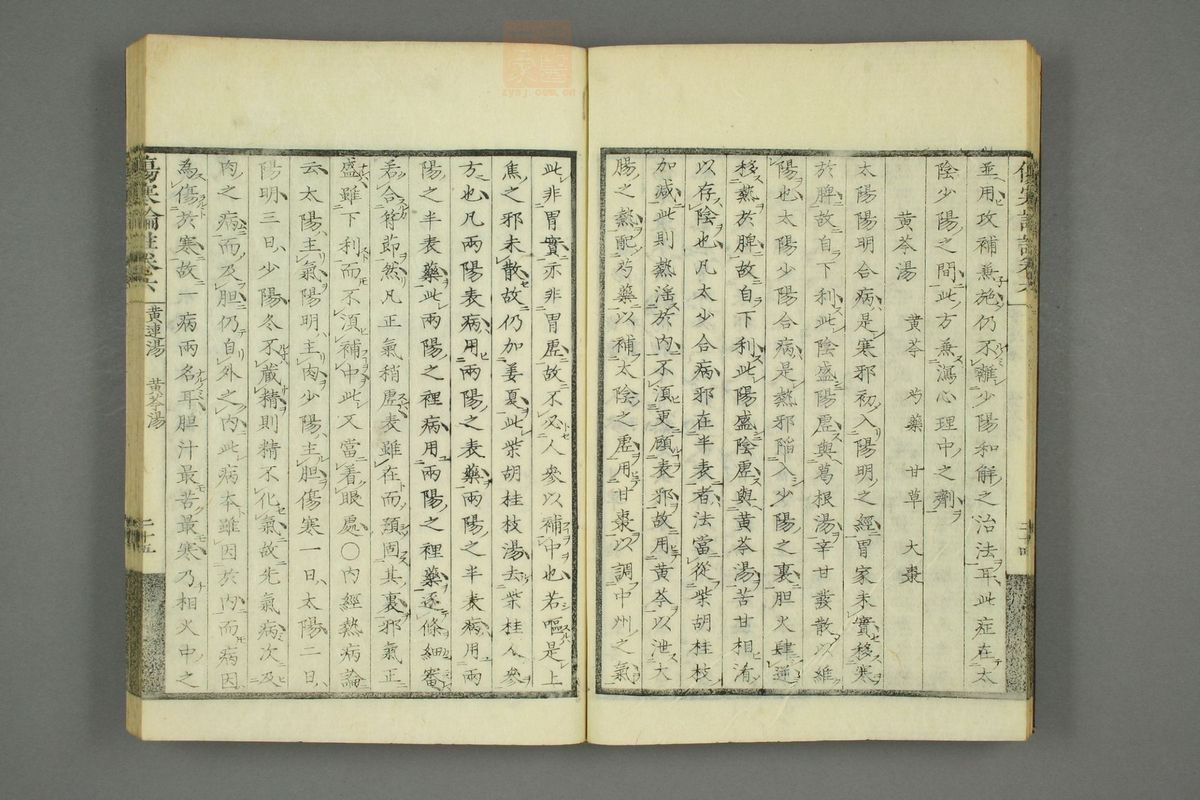 並用攻補兼施仍不離少陽和解之治法耳此症在太
陰少陽之間此方兼瀉心理中之劑
黄芩湯　黄芩　芍藥　甘草　大棗
太陽陽明合病是寒邪初入陽明之經胃家未實移寒
於脾故自下利此陰盛陽虛與葛根湯辛甘發散以維
陽也太陽少陽合病是熱邪陷入少陽之裏胆火肆逆
移熱於脾故自下利此陽盛陰虛與黄芩湯苦甘相淆
以存陰也凡太少合病邪在半表者法當從柴胡桂枝
加減此則熱淫於内不湏更顧表邪故用黄芩以泄大
腸之熱配芍藥以補太陰之虛用甘棗以調中州之氣
此非胃實亦非胃虛故不必人參以補中也若嘔是上
焦之邪未散故仍加姜夏此柴胡桂枝湯去柴桂人參
方也凡兩陽表病用兩陽之表藥兩陽之半表病用兩
陽之半表藥此兩陽之裡病用兩陽之裡藥逐條細審
若合符節然凡正氣稍虛表雖在而預固其裏邪氣正
盛雖下利而不湏補中此又當看眼處○内經熱病論
云太陽主氣陽明主肉少陽主胆傷寒一日太陽二日
陽明三日少陽冬不藏精則精不化氣故先氣病次及
肉之病而及胆仍自外之内此病本雖因於内而病因
為傷於寒故一病兩名耳胆汁最苦最寒乃相火中之
傷寒論註卷六　黄連湯　黄芩湯　二十五